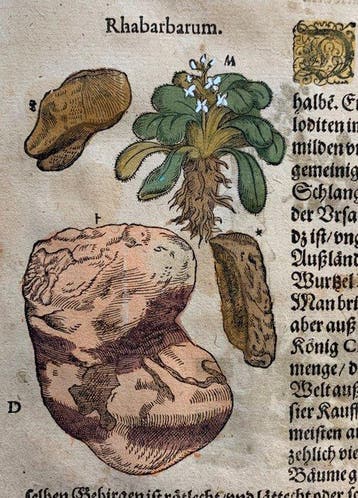 Rhabarbarum.
M
D
halbē. E
loditen in
milden vn
gemeinig
Schlang
der Vrſa
dz iſt/ vn
Außlän
Wurtzel
Man br
aber auß
König C
menge/ d
Welt auß
ſier Kauff
meiſten a
zehlich vie
Bäume g
ſelben Gebirgen iſt rötlecht vnd oder